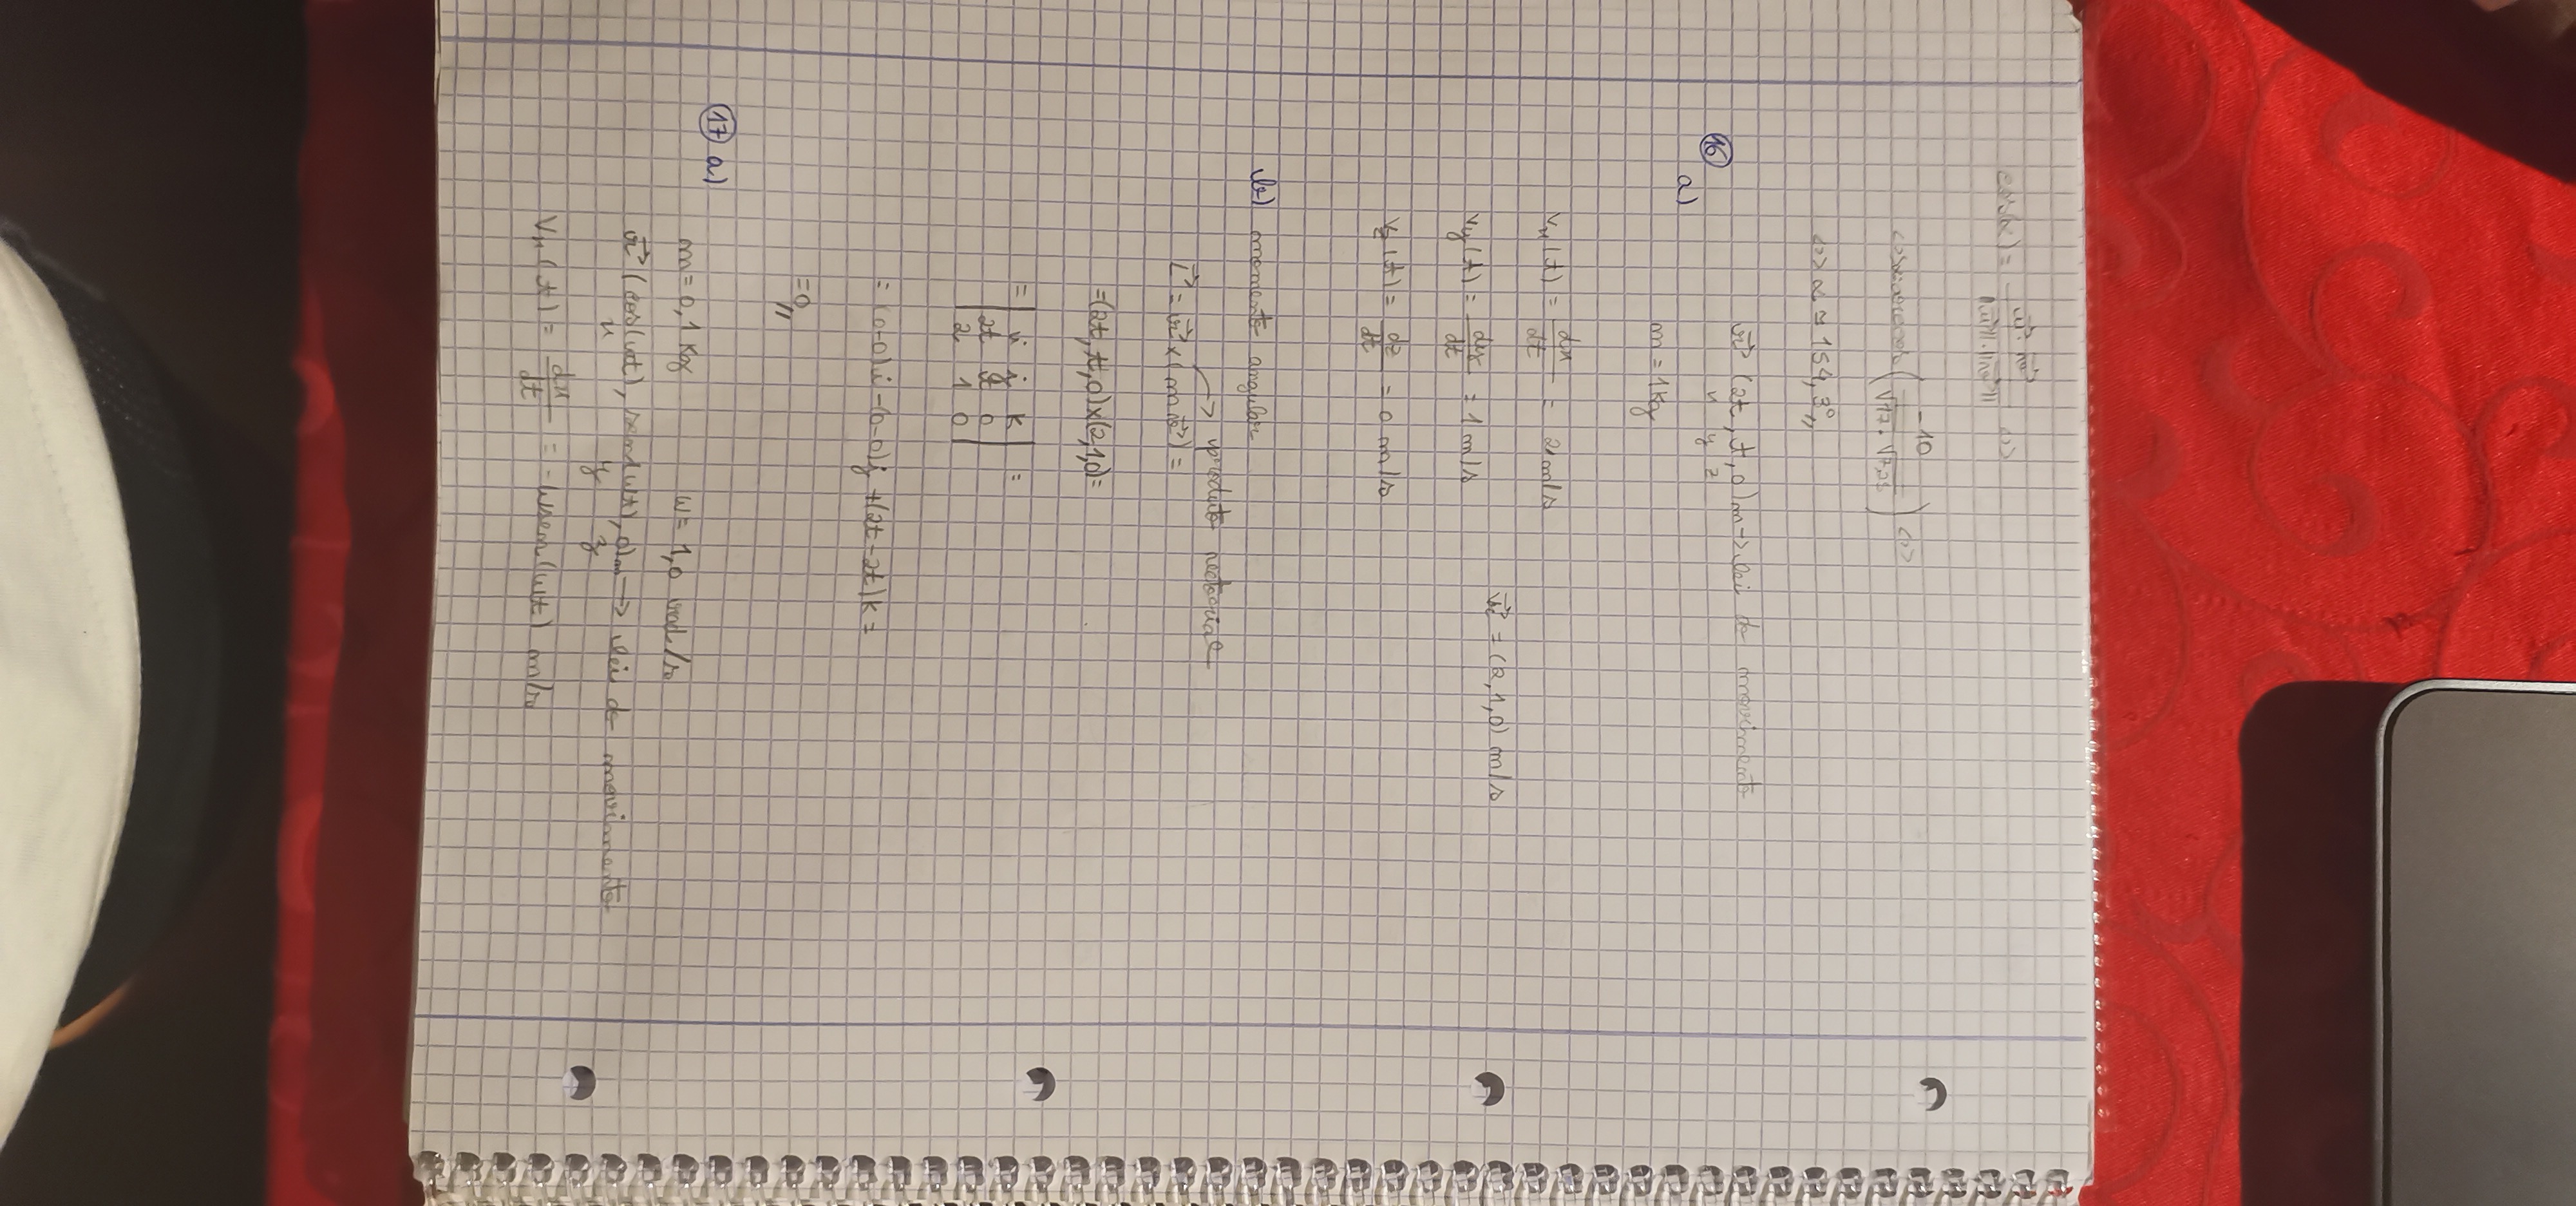 cos(α) = \frac{\vec{u} . \vec{n}}{||\vec{u}||.||\vec{n}||} <=>
<=> \left( \frac{-10}{\sqrt{17} . \sqrt{7,25}} \right) <=>
<=> α ≃ 154,3°,,
16
a) \vec{r} (2t, t, 0)m -> lei do movimento
x y z
m = 1 kg
v_x(t) = \frac{dx}{dt} = 2 m/s
v_y(t) = \frac{dy}{dt} = 1 m/s
\vec{v} = (2, 1, 0) m/s
v_z(t) = \frac{dz}{dt} = 0 m/s
b) momento angular
-> produto vetorial
\vec{L} = \vec{r} × (m\vec{v}) =
= (2t, t, 0) × (2, 1, 0) =
= | i j k | =
2t t 0
2 1 0
= (0-0)i - (0-0)j + (2t - 2t)k =
= 0,,
17 a)
m = 0,1 kg w = 1,0 rad/s
\vec{r} (cos(wt), sen(wt), 0)m -> lei do movimento
x y z
v_x(t) = \frac{dx}{dt} = -wsen(wt) m/s